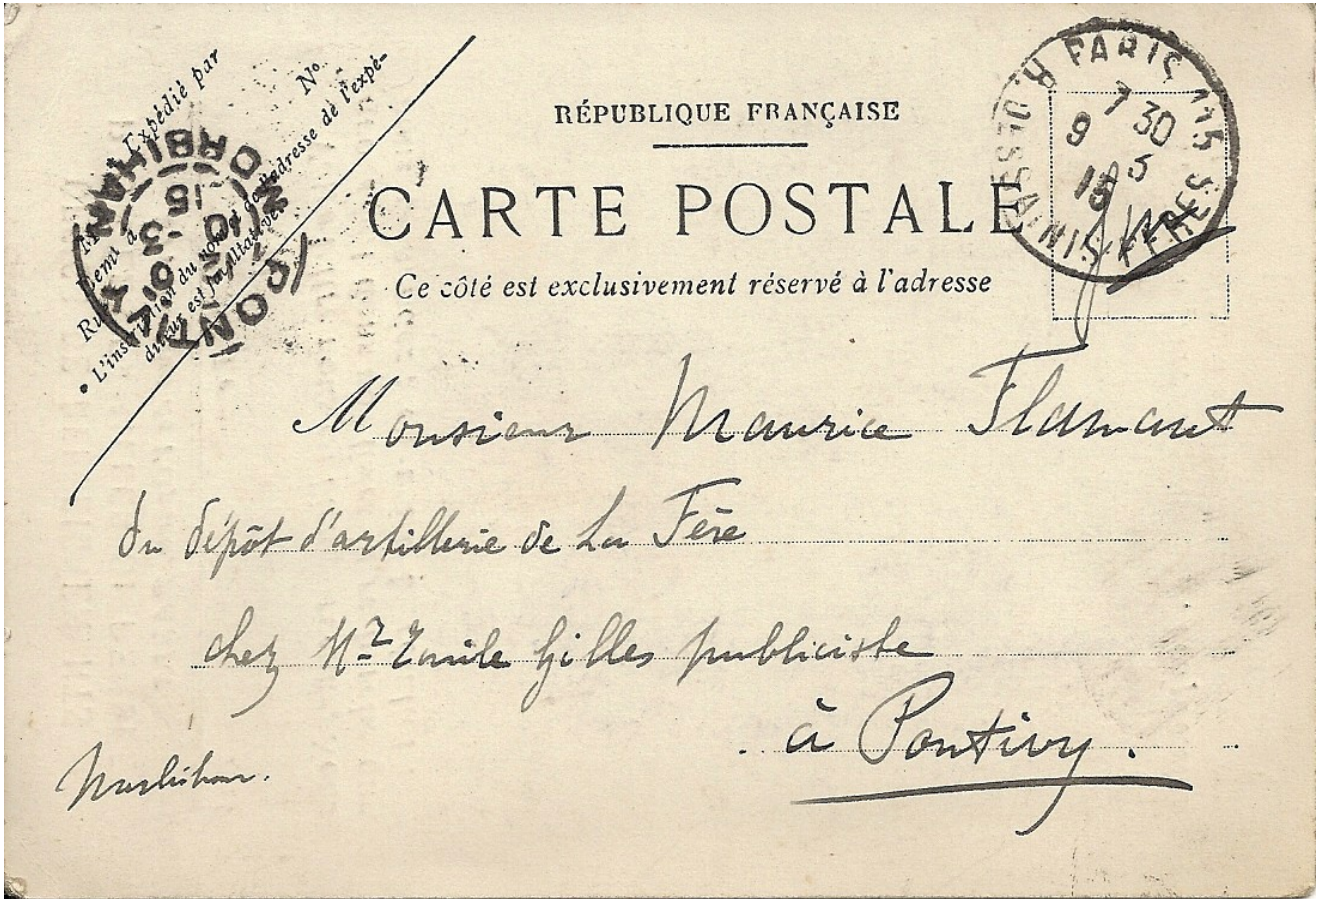 Expédié par
N°
M
Dem^t à
Ru
• L'insertion du nom et de l'adresse de l'expé-
diteur est facultative.
PONTIVY
MORBIHAN
10-3
15
RÉPUBLIQUE FRANÇAISE
CARTE POSTALE
Ce côté est exclusivement réservé à l'adresse
PARIS 115 R. DES SAINTS-PERES
7 30
9 3
15
Monsieur Maurice Flamant
du dépôt d'artillerie de La Fère
chez Mr Emile Gilles publiciste
à Pontivy.
Morbihan.